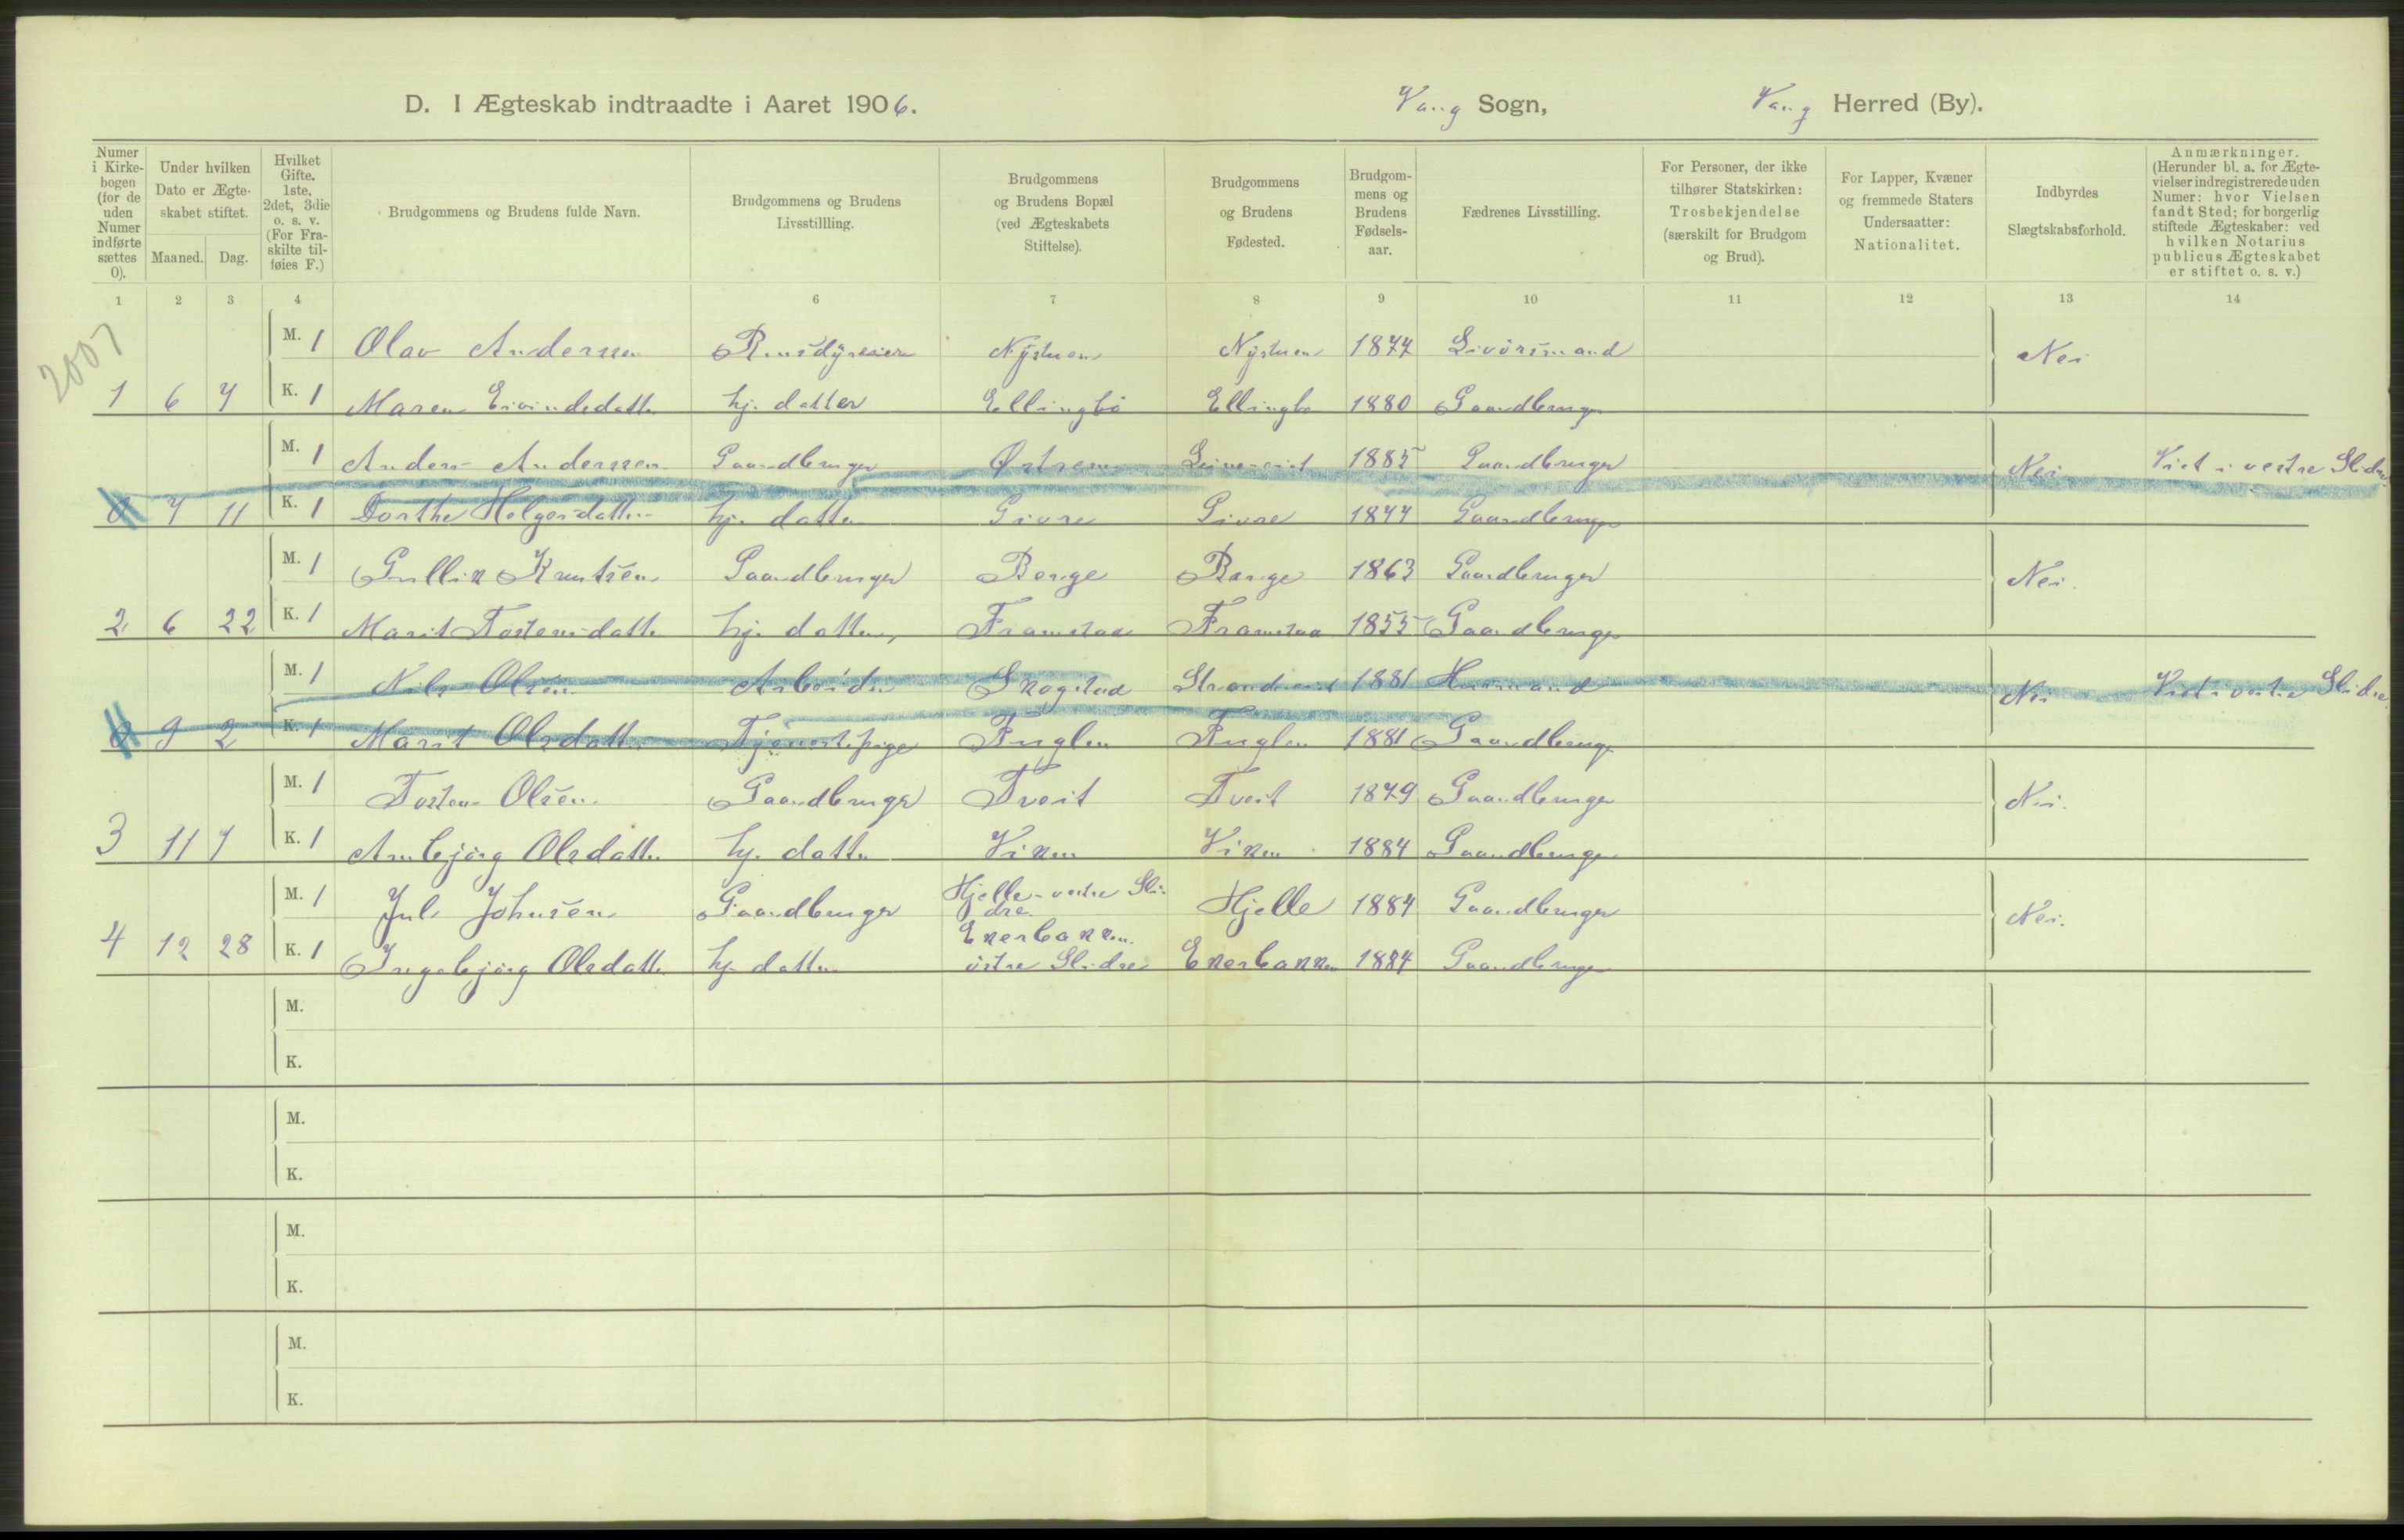 D. I Ægteskab indtraadte i Aaret 1906. Vang Sogn, Vang Herred (By).
Numer i Kirke-bogen (for de uden Numer indførte sættes 0).
Under hvilken Dato er Ægte-skabet stiftet.
Maaned. Dag.
Hvilket Gifte. 1ste, 2det, 3die o. s. v. (For Fra-skilte til-føies F.)
Brudgommens og Brudens fulde Navn.
Brudgommens og Brudens Livsstillling.
Brudgommens og Brudens Bopæl (ved Ægteskabets Stiftelse).
Brudgommens og Brudens Fødested.
Brudgom-mens og Brudens Fødsels-aar.
Fædrenes Livsstilling.
For Personer, der ikke tilhører Statskirken: Trosbekjendelse (særskilt for Brudgom og Brud).
For Lapper, Kvæner og fremmede Staters Undersaatter: Nationalitet.
Indbyrdes Slægtskabsforhold.
Anmærkninger. (Herunder bl. a. for Ægte-vielser indregistrerede uden Numer: hvor Vielsen fandt Sted; for borgerlig stiftede Ægteskaber: ved hvilken Notarius publicus Ægteskabet er stiftet o. s. v.)
1 2 3 4 6 7 8 9 10 11 12 13 14
2007
M. 1 Olav Anderssen Rensdyreier Nystuen Nystuen 1877 Nei
1 6 7 K. 1 Maren Eivindsdatter hj. datter Ellingbö Ellingbö 1880 Gaardbruger
M. 1 Anders Anderssen Gaardbruger Östrem 1885 Gaardbruger Nei Viet i vestre Slidre
0 7 11 K. 1 Dorthe Helgesdatter hj. datter Givre Givre 1877 Gaardbruger
M. 1 Gullik Knutsen Gaardbruger Berge Berge 1863 Gaardbruger Nei.
2 6 22 K. 1 Marit Tostensdatter hj. datter, Framstaa Framstaa 1855 Gaardbruger
M. 1 Nils Olsen Arbeider Skogstad Strandeeiet 1881 Husmand Nei Viet i vestre Slidre.
0 9 2 K. 1 Marit Olsdatter Tjenestepige Fuglen Fuglen 1881 Gaardbruger
M. 1 Tosten Olsen Gaardbruger Tveit Tveit 1879 Gaardbruger Nei.
3 11 7 K. 1 Anbjörg Olsdatter hj. datter Viken Viken 1884 Gaardbruger
M. 1 Jul Johnsen Gaardbruger Hjelle-vestre Sli-dre. Hjelle 1884 Gaardbruger Nei.
4 12 28 K. 1 Ingebjörg Olsdatter hj. datter Ekerbakken. östre Slidre Ekerbakken 1884 Gaardbruger
M.
K.
M.
K.
M.
K.
M.
K.